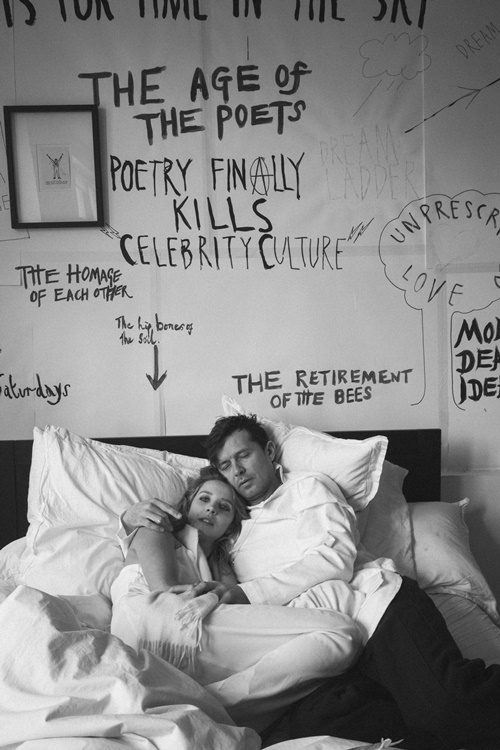 IS FOR TIME IN THE SKY
DREAM
THE AGE OF
THE POETS
DREAM
LADDER
POETRY FINALLY
KILLS
CELEBRITY CULTURE
UNPRESCR
LOVE
THE HOMAGE
OF EACH OTHER
The hip bones of
the Soil.
Saturdays
THE RETIREMENT
OF THE BEES
MO
DEA
IDE